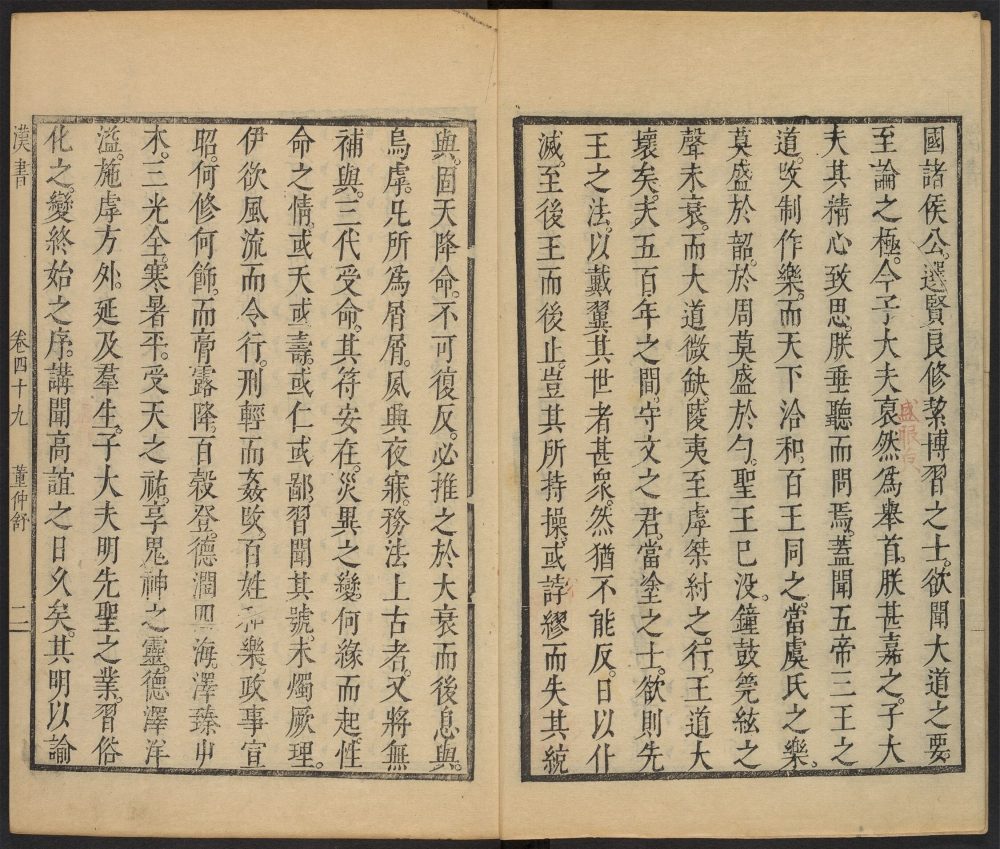 國諸侯公選賢良修絜博習之士欲聞大道之要
至論之極今子大夫裒然爲舉首朕甚嘉之子大
夫其精心致思朕垂聽而問焉蓋聞五帝三王之
道攺制作樂而天下洽和百王同之當虞氏之樂
莫盛於韶於周莫盛於勺聖王已没鐘鼓筦絃之
聲未衰而大道微缺陵夷至虖桀紂之行王道大
壞矣夫五百年之間守文之君當塗之士欲則先
王之法以戴翼其世者甚衆然猶不能反日以仆
滅至後王而後止豈其所持操或誖繆而失其統
盛服
與固天降命不可復反必推之於大衰而後息與
烏虖凡所爲屑屑夙興夜寐務法上古者又將無
補與三代受命其符安在災異之變何緣而起性
命之情或夭或壽或仁或鄙習聞其號未燭厥理
伊欲風流而令行刑輕而姦攺百姓和樂政事宣
昭何修何飭而膏露降百穀登德潤四海澤臻屮
木三光全寒暑平受天之祜享鬼神之靈德澤洋
溢施虖方外延及羣生子大夫明先聖之業習俗
化之變終始之序講聞高誼之日久矣其明以諭
漢書 卷四十九 董仲舒 二